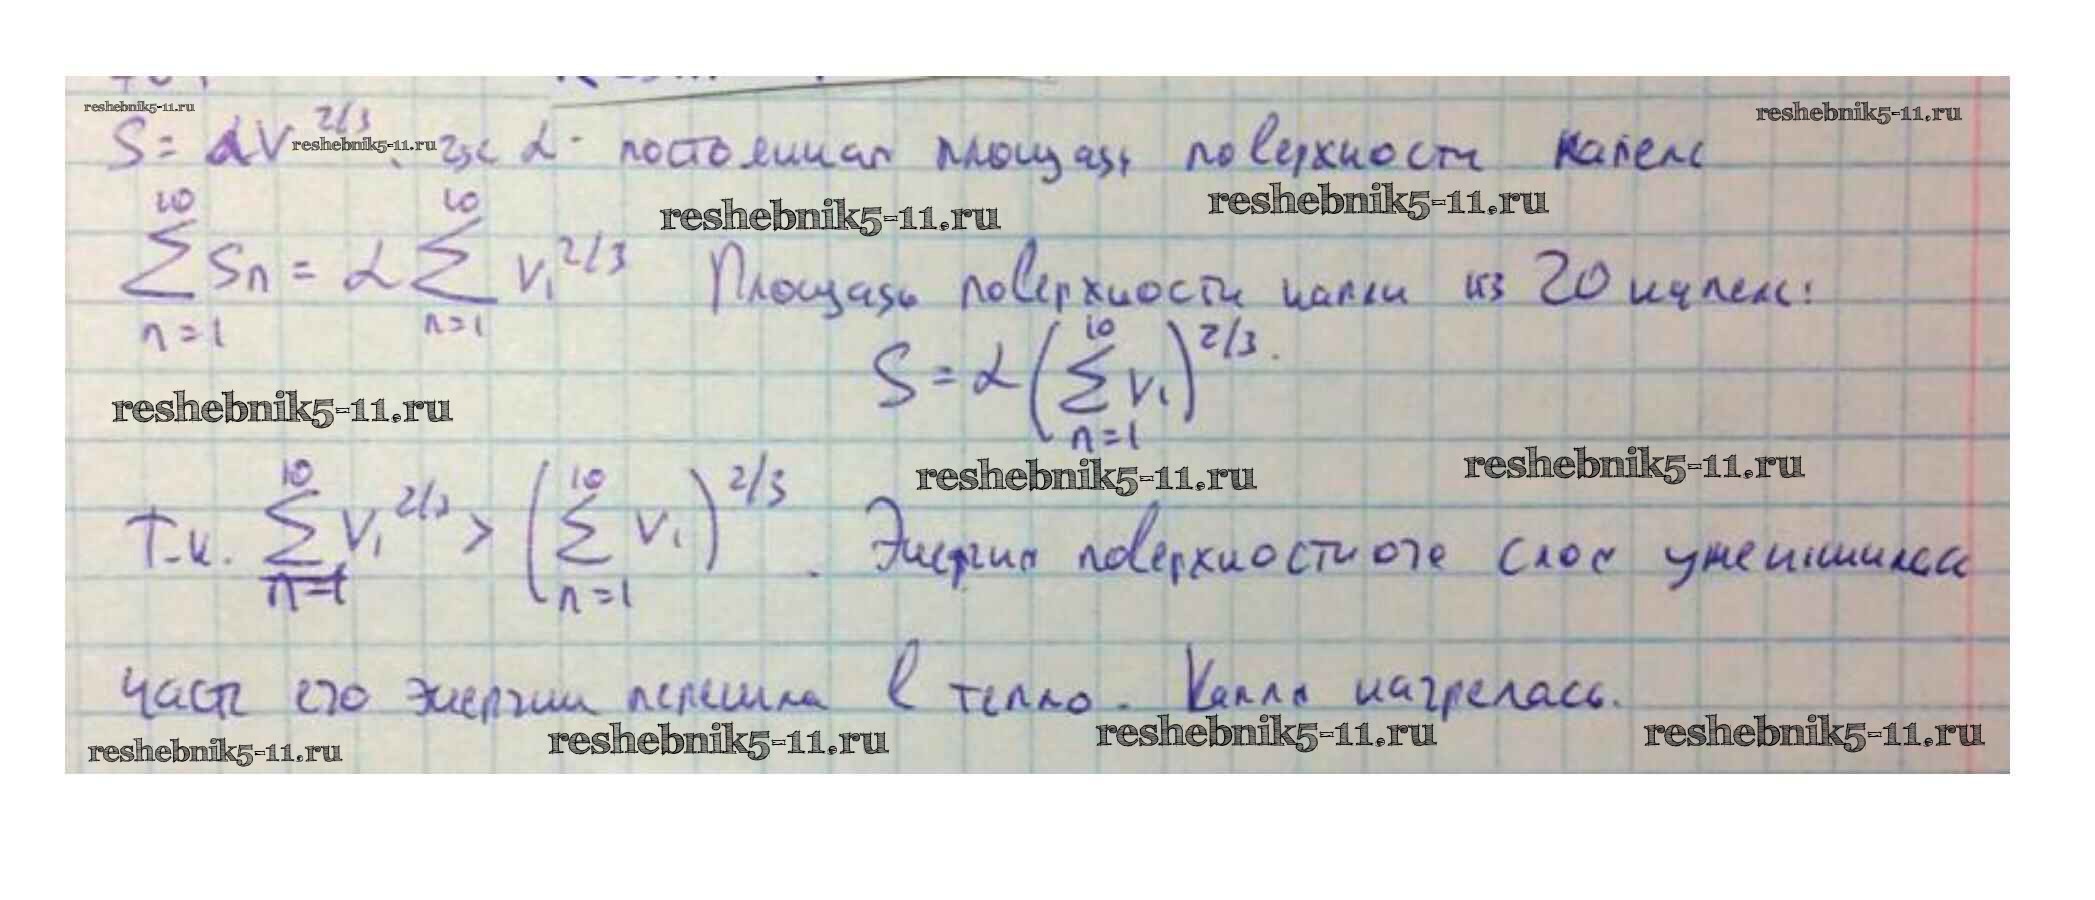 reshebnik5-11.ru
reshebnik5-11.ru
S = αV^2/3, где α - постоянная площадь поверхности капель
reshebnik5-11.ru
reshebnik5-11.ru reshebnik5-11.ru
10 ∑ n=1 Sn = α 10 ∑ n=1 V₁^2/3 Площадь поверхности капли из 20 капель:
S = α (10 ∑ n=1 V₁)^2/3.
reshebnik5-11.ru
reshebnik5-11.ru reshebnik5-11.ru
Т.к. 10 ∑ n=1 V₁^2/3 > (10 ∑ n=1 V₁)^2/3. Энергия поверхностного слоя уменьшилась
часть его энергии перешла в тепло. Капля нагрелась.
reshebnik5-11.ru reshebnik5-11.ru reshebnik5-11.ru reshebnik5-11.ru